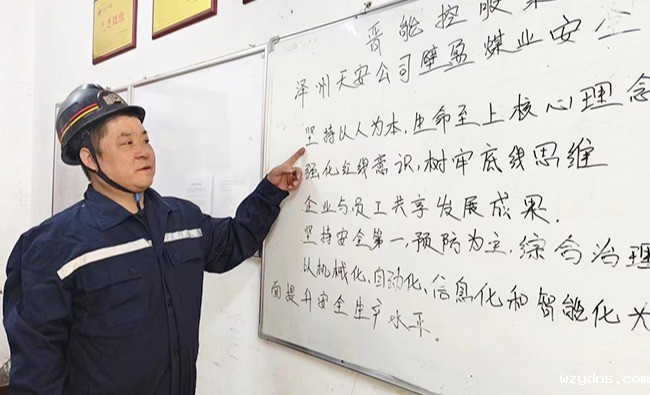 晋能控股
泽州天安公司壁盈煤业安全
坚持以人为本,生命至上核心理念
强化红线意识,树牢底线思维
企业与员工共享发展成果.
坚持安全第一,预防为主,综合治理
以机械化、自动化、信息化和智能化为
面提升安全生产水平。
wzydns.com